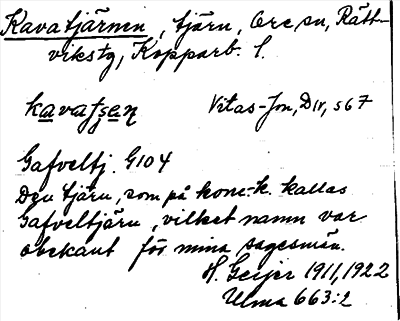 Kavatjärnen, tjärn, Ore sn, Rätt-
vikstg, Kopparb. l.
Vitas-Jon, D 11, s 67
Gafveltj. G104
Den tjärn, som på konc.-k. kallas
Gafveltjärn, vilket namn var
obekant för mina sagesmän.
H. Geijer 1911, 1922
Ulma 663:2